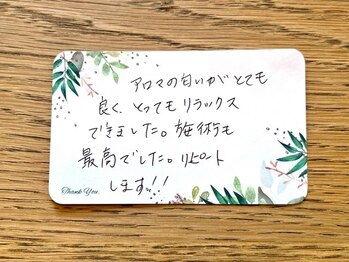 アロマの匂いがとても
良く、とってもリラックス
できました。施術も
最高でした。リピート
します!!
Thank You